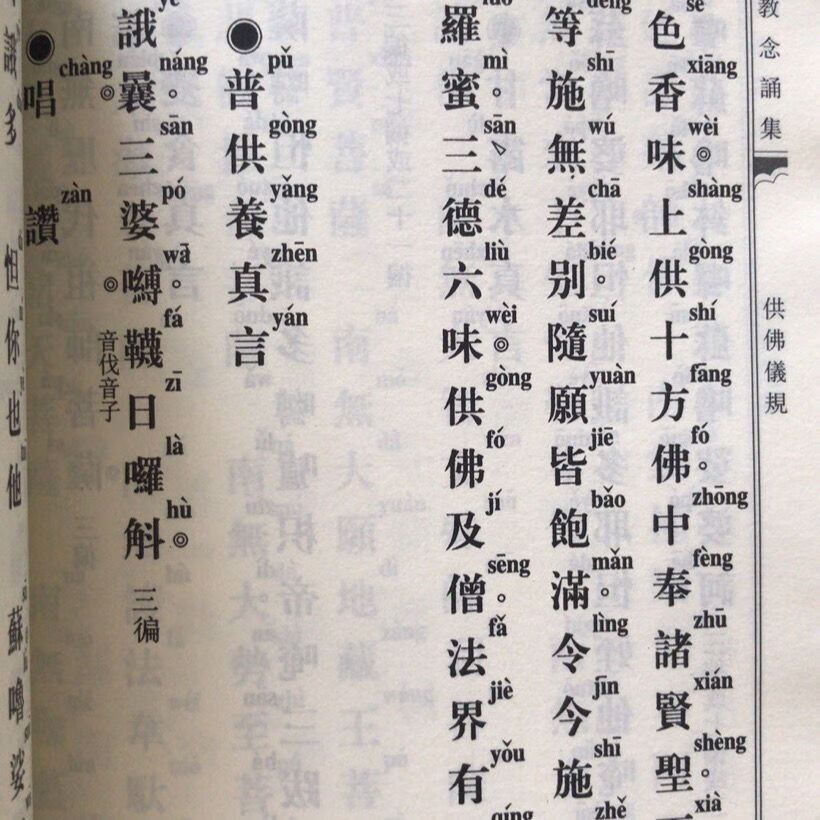 教念誦集
供佛儀規
色香味◎上供十方佛。中奉諸賢聖。
等施無差別。隨願皆飽滿。令今施
羅蜜。三德六味◎供佛及僧。法界有
●普供養真言
誐曩。三婆嚩。韈日囉斛◎三徧
◎音伐音子
●唱讚
多
怛你也他
蘇嚕娑
xiāng wèi shàng gòng shí fāng fó zhōng fèng zhū xián shèng xià
shī wú chā bié suí yuàn jiē bǎo mǎn lìng jīn shī zhě
mì sān dé liù wèi gòng fó jí sēng fǎ jiè yǒu qíng
pǔ gòng yǎng zhēn yán
náng sān pó wā fá zī là hù
chàng zàn